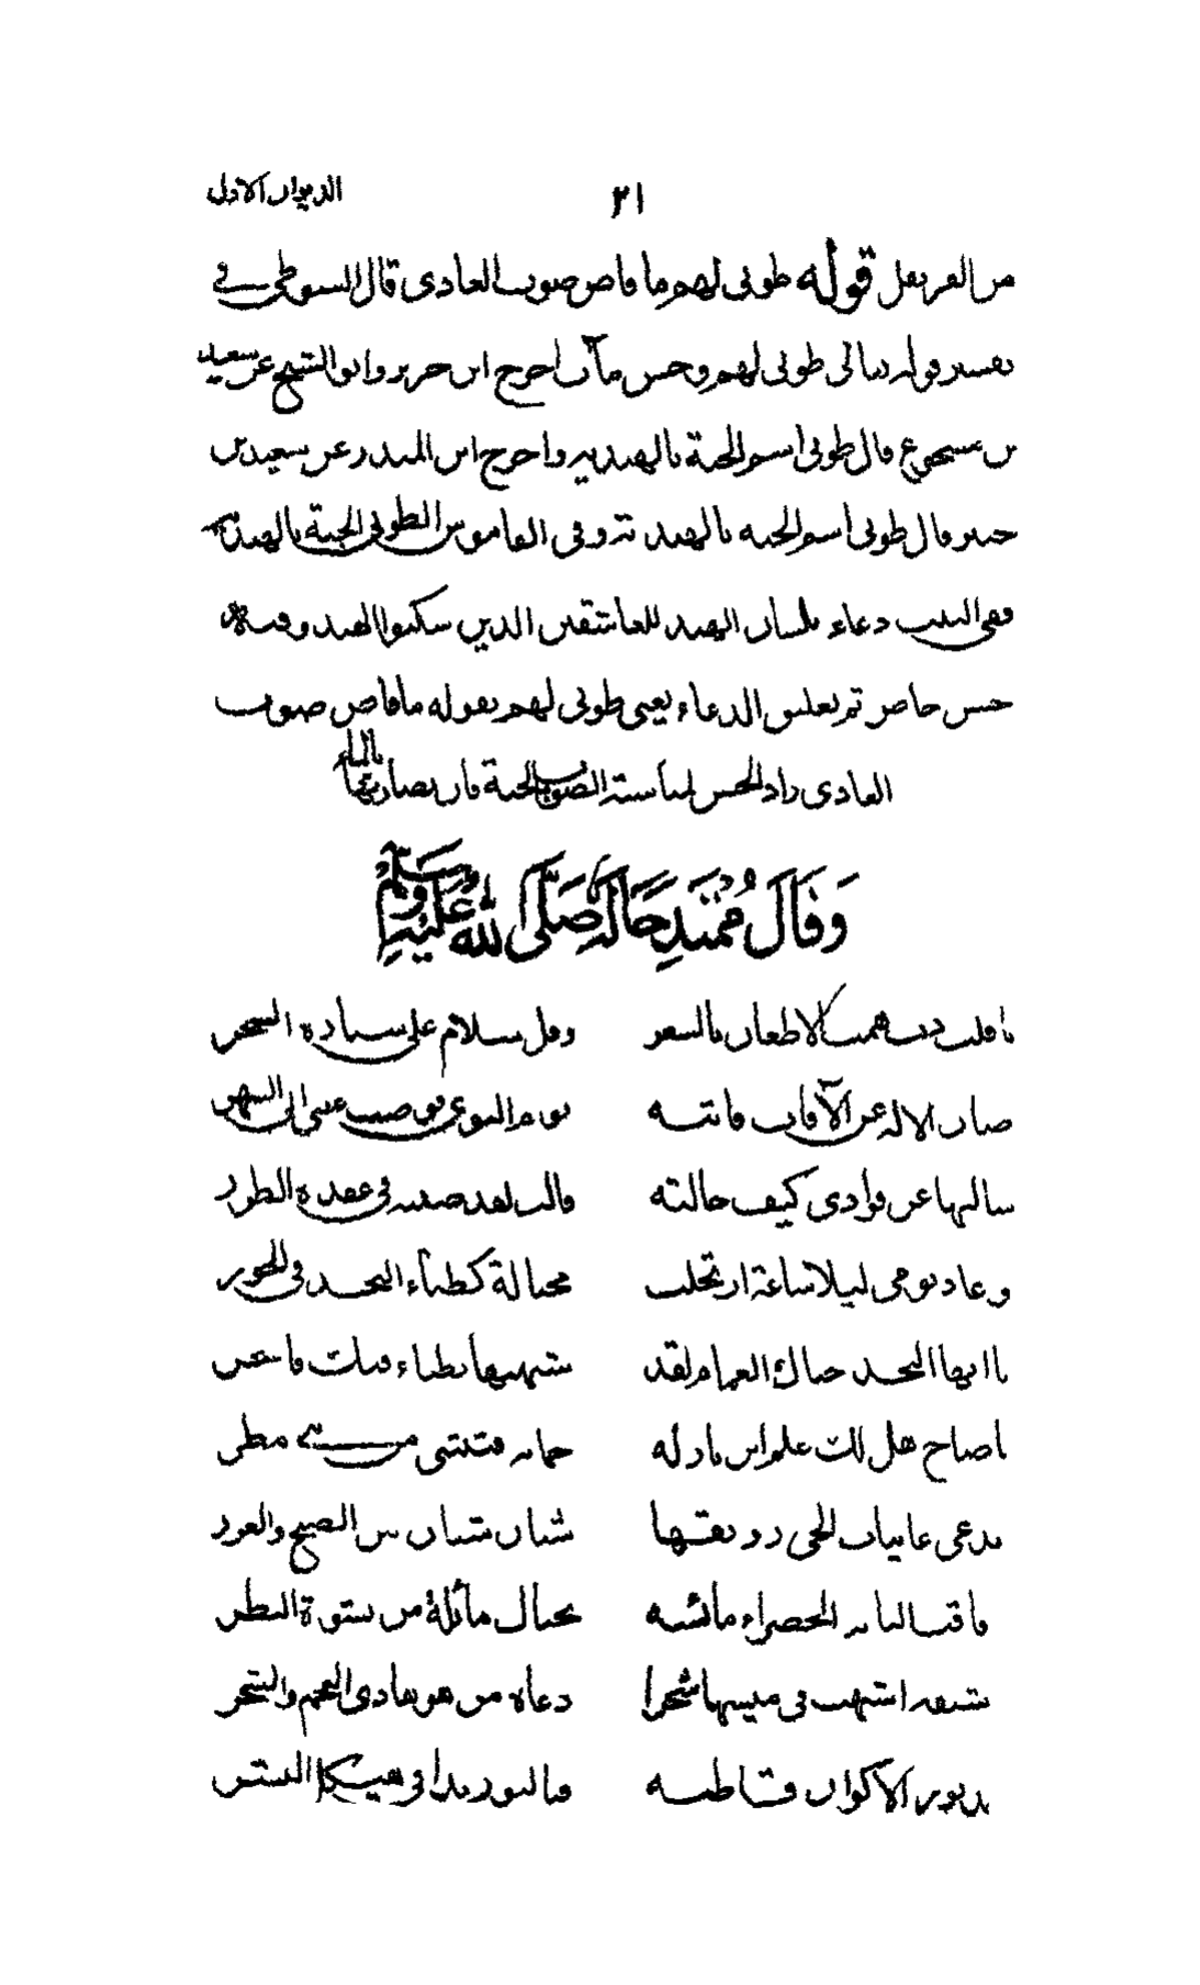 الديوان الاول
٢١
من العريفل قوله طوبى لهم ما فاض صوب الغادى قال السيوطي في
تفسير قوله تعالى طوبى لهم وحسن مآب اخرج ابن جرير وابو الشيخ عن سعيد
بن مسجوع قال طوبى اسم الجنة بالهندية واخرج ابن المنذر عن سعيد بن
جبير قال طوبى اسم الجنة بالهندية وفى القاموس الطوبى الجنة بالهندية
ففي البيت دعاء بلسان الهند للعاشقين الذين سكنوا الهند وفيه
حسن خاص ثم تعليق الدعاء يعنى طوبى لهم بقوله ما فاض صوب
الغادى زاد الحسن لمناسبة الصوب الجنة فان نضارتها بالماء
وقال ممتدحا له صلى الله عليه وسلم
يا قلب همت الاظعان بالسفر
وقل سلام على سيارة السحر
صان الاله عن الآفات فاتنة
يوم النوى صبت عينى الى السهر
سالتها عن فوادى كيف حالته
قالت لقد صدته فى عقدة الطرر
وعاد نومى ليلا ساعة ارتحلت
محبالة كظباء النجد فى الحور
يا ايها النجد حياك الغمام لقد
شبهتها بظباء فيك
يا صاح هل لك علم اين بادله
من مطر
تدعى غانيات الحى رونقها
شتان شتان بين الصبح والغرر
يا قبة البانة الخضراء مائسة
تختال مائلة من نشوة البطر
شبهت فى ميسها شجرا
دعاه من هو هادى النجم والشجر
بدر ينور الاكوان قاطبة
فالنور بدا فى هيكل البشر